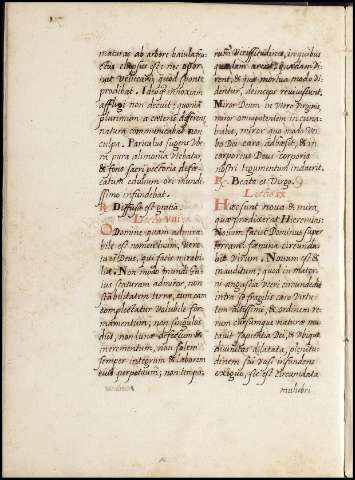 maturas ab arbore baiula fru
ctus elapsus est: nec opor
tuit vellicari, quod sponte
prodibat. Ideoq; innoxiam
affligi non decuit: quoniā
plurimum a cæteris differens,
natura communicabat non
culpa. Parvulus sugens Ube
ra pura alimonia utebatur,
& fons sacri pectoris defæ
catum edulium ori mundi
ssimo infundebat.
R. Diffusa est gratia.
Lectio viii.
O Domine quam admira
bile est nomen tuum, vere
tu es Deus, qui facis mirabi
lia. Non modo mundi hu
ius staturam admiror, non
stabilitatem terræ, cum eam
complectatur volubile fir
mamentum; non singulos
dies, non lunæ defectum &
incrementum, non solem
semper integrum & laborem
eius perpetuum; non tempo:
rum vicissitudines, in quibus
quædam arent, quædam vi
rent, & quæ mortua modo vi
dentur, deinceps reviviscunt.
Miror Deum in utero Virginis,
miror omnipotentem in cuna
bulis, miror quo modo Ver
bo Dei caro adhæsit, & in
corporeus Deus corporis
nostri tegumentum induerit.
R. Beata es Virgo.
Lectio ix.
Hæc sunt nova & mira,
quæ prædixerat Hieremias:
Novum faciet Dominus super
terram: fæmina circunda
bit Virum. Novum est &
inauditum; quod in mater
ni angustia uteri circundedit
intra se fragilis caro virtu
tem altissimi, & ordinem re
rum cursumque naturæ mu
tavit sapientia Dei, & ubique
divinitas dilatata, plenitu
dinem sui vasi infundens
exiguo, sic est circundata
muliebri